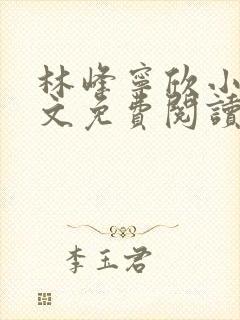 林峰寧欣小
文免費閱讀
李玉君